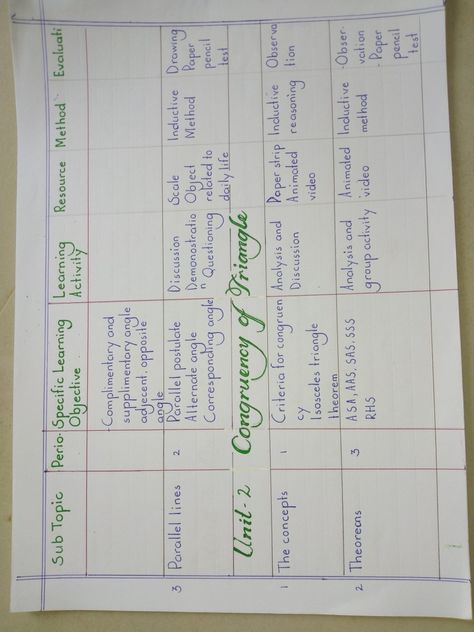 Sub Topic
Perio-
Specific Learning
Objective
Learning
Activity
Resource
Method
Evaluati
-Complimentary and
supplimentary angle
adjecent, opposite
angle
3
Parallel lines
2
Parallel postulate
Alternate angle
Corresponding angle
Discussion
Demonostratio
n Questioning
Scale
Object
related to
daily life
Inductive
Method
Drawing
Paper
pencil
test
Unit-2 Congruency of Triangle
1
The concepts
1
Criteria for congruen
cy
Isosceles triangle
theorem
Analysis and
Discussion
Paper strip
Animated
video
Inductive
reasoning
Observa
tion
2
Theorems
3
ASA, AAS, SAS, SSS
RHS
Analysis and
group activity
Animated
video
Inductive
method
·Obser-
vation
·Paper
pencil
test